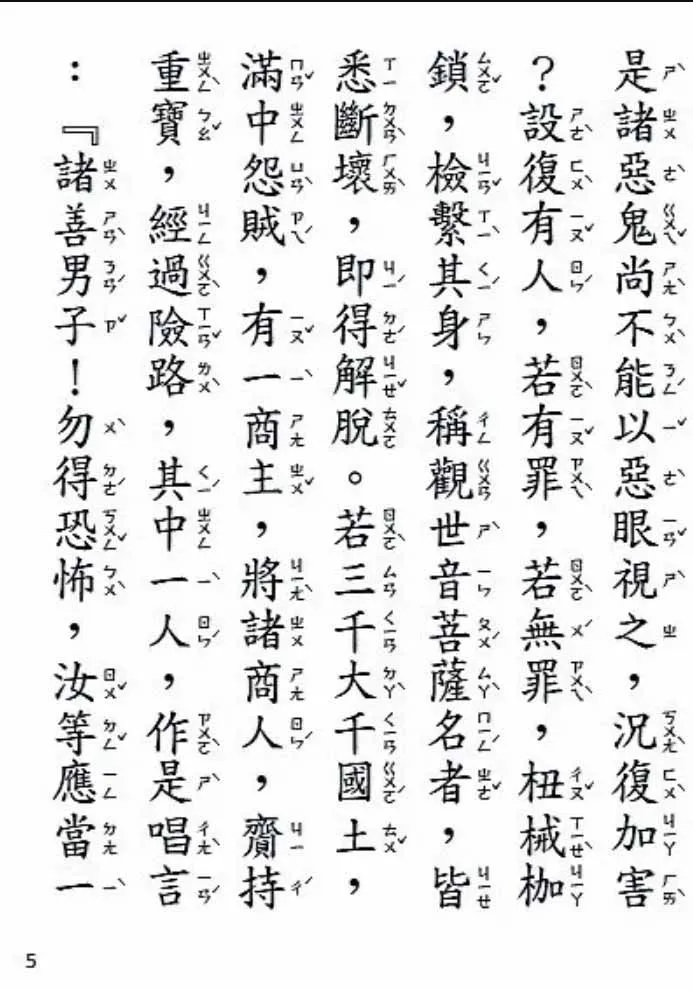 是諸惡鬼尚不能以惡眼視之，況復加害
？設復有人，若有罪，若無罪，杻械枷
鎖，檢繫其身，稱觀世音菩薩名者，皆
悉斷壞，即得解脫。若三千大千國土，
滿中怨賊，有一商主，將諸商人，齎持
重寶，經過險路，其中一人，作是唱言
：『諸善男子！勿得恐怖，汝等應當一
5